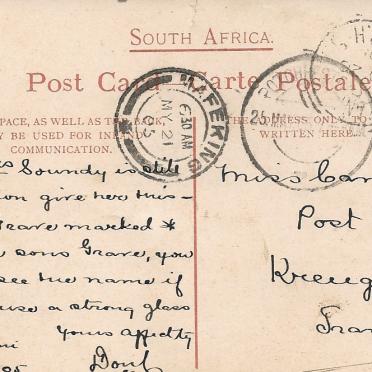 SOUTH AFRICA.
Post Card Carte Postale
PACE, AS WELL AS THE BACK,
BE USED FOR INLAND
COMMUNICATION.
THE ADDRESS ONLY TO
WRITTEN HERE.
MAFEKING
6.30 AM
MY 21
05
25 M
Soundy is still
on give her this -
Grave marked *
sons Grave, you
see the name if
use a strong glass
Yours Affectly
Miss
Post